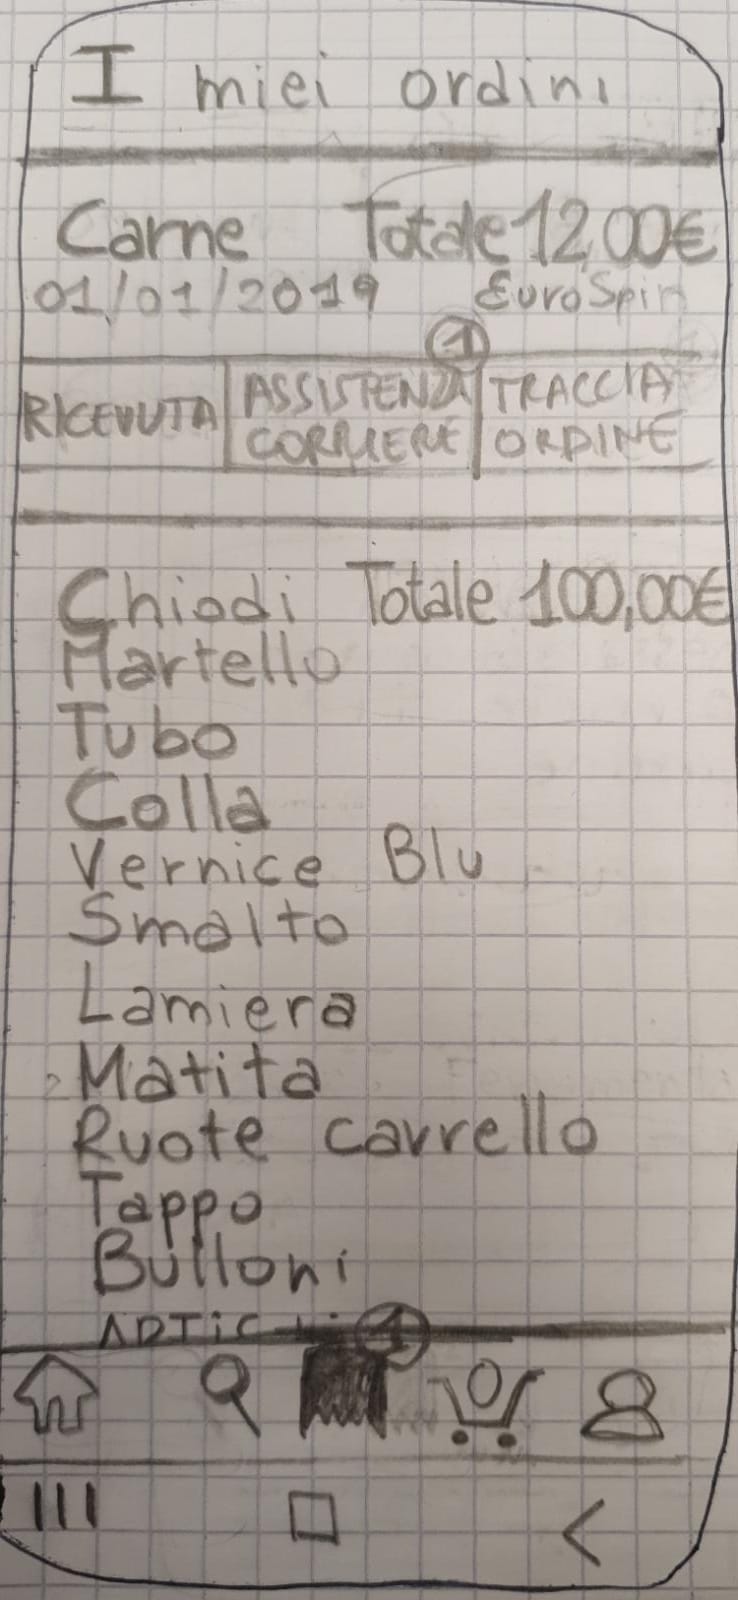 I miei ordini
Carne Totale 12,00€
01/01/2019 EuroSpin
1
RICEVUTA ASSISTENZA TRACCIA
CORRIERE ORDINE
Chiodi Totale 100,00€
Martello
Tubo
Colla
Vernice Blu
Smalto
Lamiera
Matita
Ruote carrello
Tappo
Bulloni
1